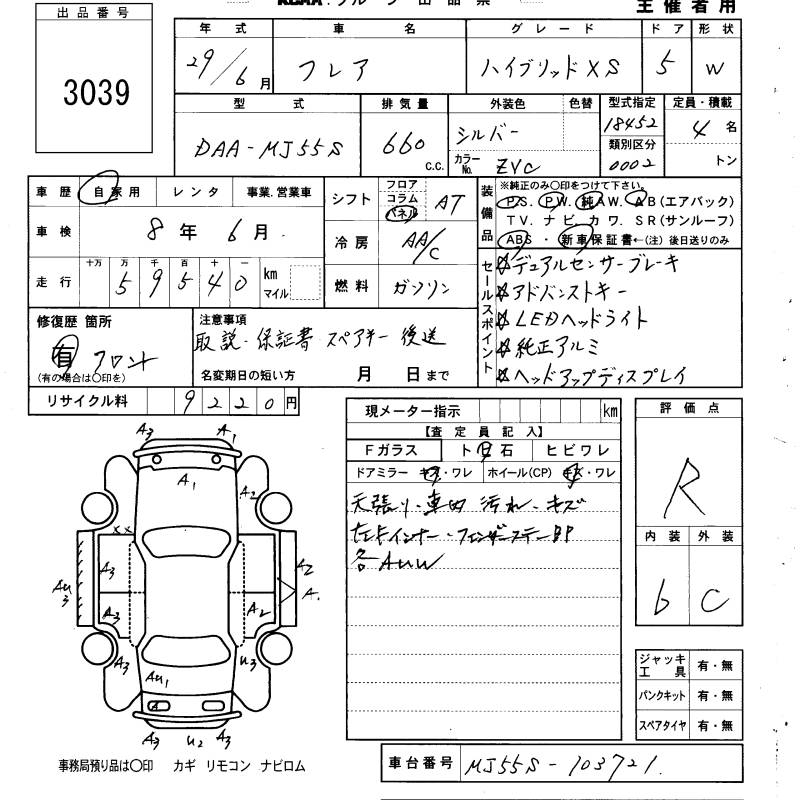 主催者用
出品番号
3039
年式 車名 グレード ドア 形状
29/6月 フレア ハイブリッドXS 5 W
型式 排気量 外装色 色替 型式指定 定員・積載
DAA-MJ55S 660 c.c. シルバー 18452 4名
カラーNo. ZVC 類別区分 0002 トン
車歴 自家用 レンタ 事業.営業車
車検 8年 6月
走行 十万 万 千 百 十 一
59540 km マイル
シフト フロア コラム パネル AT
冷房 AA/C
燃料 ガソリン
装備品 ※純正のみ〇印をつけて下さい。
PS. PW. 純AW. AB(エアバック)
TV. ナビ. カワ. SR(サンルーフ)
ABS・新車保証書←(注)後日送りのみ
セールスポイント
☆デュアルセンサーブレーキ
☆アドバンストキー
☆LEDヘッドライト
☆純正アルミ
☆ヘッドアップディスプレイ
修復歴 箇所
有 フロント
(有の場合は〇印を)
注意事項
取説・保証書 スペアキー 後送
名変期日の短い方 月 日まで
リサイクル料 9220円
現メーター指示 km
【査定員記入】
Fガラス ト日石 ヒビワレ
ドアミラー キズ・ワレ ホイール(CP) キズ・ワレ
天張り・車内 汚れ・キズ
左Fインナー・フェンダーステー部
各AUW
評価点
R
内装 外装
6 C
A3 A1
A1
A2
XX
A3 A2
AU3 A.
A3 A2
A3 U3
AU1
A3 U2 A3
ジャッキ工具 有・無
パンクキット 有・無
スペアタイヤ 有・無
事務局預り品は〇印 カギ リモコン ナビロム
車台番号 MJ55S-103721